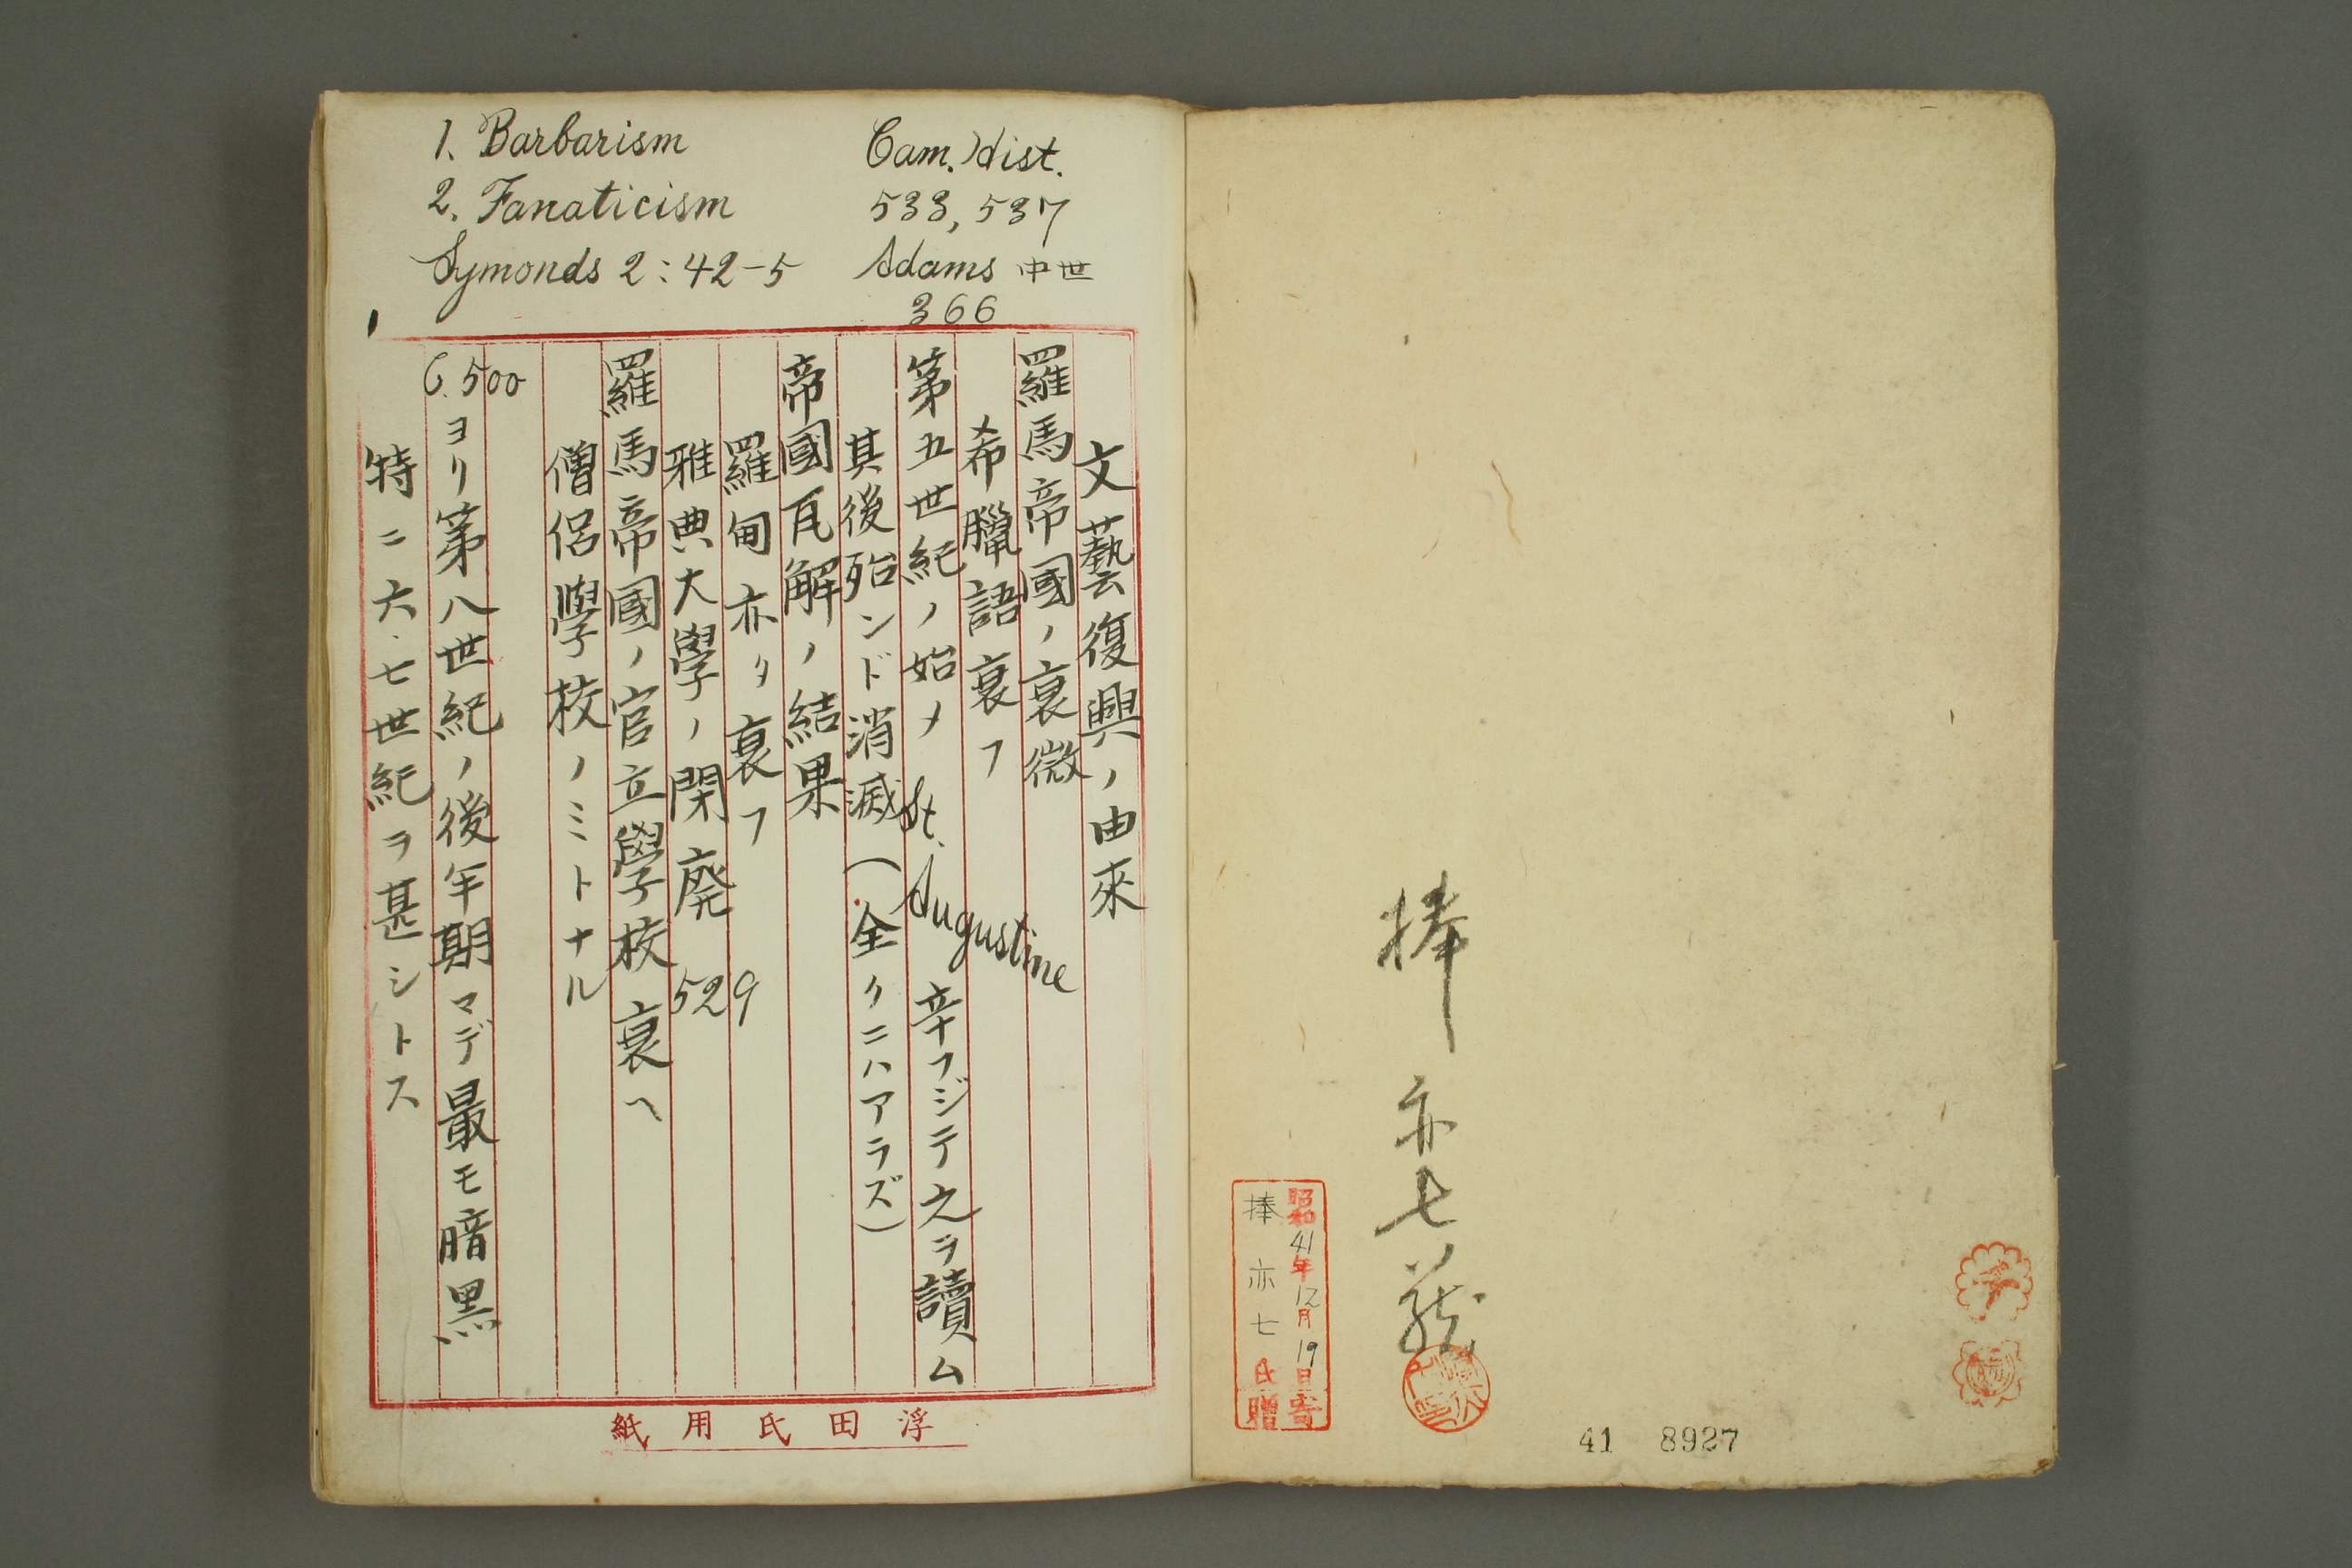 捧亦七蔵
昭和41年12月19日寄
捧亦七氏贈
41 8927
1. Barbarism
2. Fanaticism
Symonds 2:42-5
Cam. Hist.
533, 537
Adams 中世
366
文藝復興ノ由來
羅馬帝國ノ衰微
希臘語衰フ
第五世紀ノ始メ St. Augustine 辛フジテ之ヲ讀ム
其後殆ンド消滅(全クニハアラズ)
帝國瓦解ノ結果
羅甸亦タ衰フ
雅典大學ノ閉廃 529
羅馬帝國ノ官立學校衰ヘ
僧侶學校ノミトナル
C. 500ヨリ第八世紀ノ後年期マデ最モ暗黒
特ニ六、七世紀ヲ甚シトス
浮田氏用紙